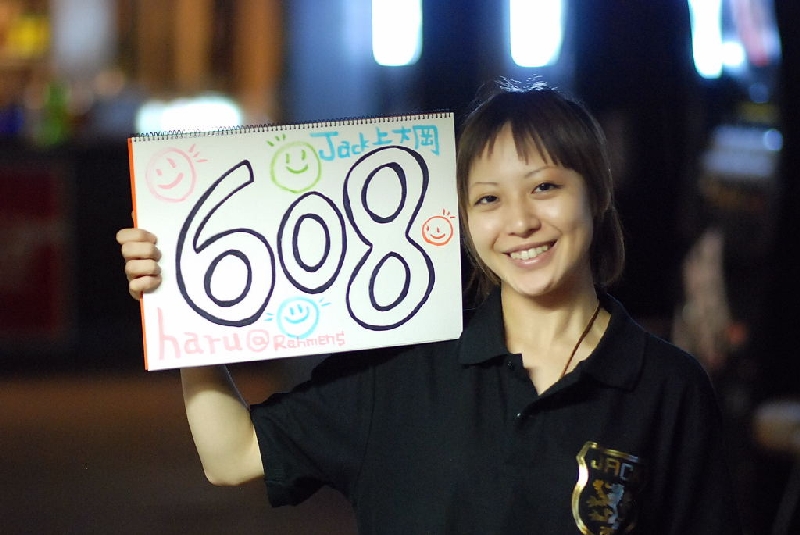 Jack上大岡
608
haru@Rahmens
JACK